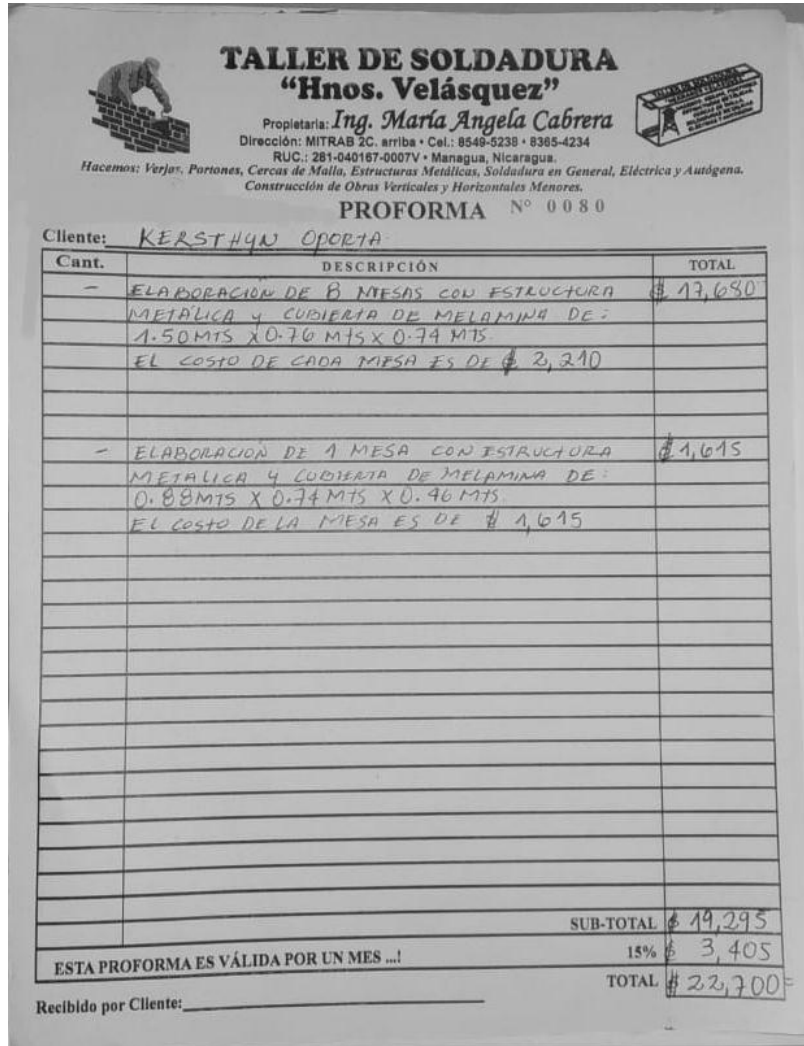 TALLER DE SOLDADURA
"Hnos. Velásquez"
Propietaria: Ing. María Angela Cabrera
Dirección: MITRAB 2C. arriba • Cel.: 8549-5238 • 8365-4234
RUC.: 281-040167-0007V • Managua, Nicaragua.
Hacemos: Verjas, Portones, Cercas de Malla, Estructuras Metálicas, Soldadura en General, Eléctrica y Autógena.
Construcción de Obras Verticales y Horizontales Menores.
PROFORMA Nº 0080
Cliente: KERSTHYN OPORTA
Cant. DESCRIPCIÓN TOTAL
- ELABORACIÓN DE 8 MESAS CON ESTRUCTURA ₡ 17,680
METÁLICA Y CUBIERTA DE MELAMINA DE:
1.50 MTS X 0.76 MTS X 0.74 MTS.
EL COSTO DE CADA MESA ES DE ₡ 2,210
- ELABORACIÓN DE 1 MESA CON ESTRUCTURA ₡ 1,615
METALICA Y CUBIERTA DE MELAMINA DE:
0.88 MTS X 0.74 MTS X 0.46 MTS.
EL COSTO DE LA MESA ES DE ₡ 1,615
SUB-TOTAL ₡ 19,295
ESTA PROFORMA ES VÁLIDA POR UN MES ...! 15% ₡ 3,405
TOTAL ₡ 22,700=
Recibido por Cliente: